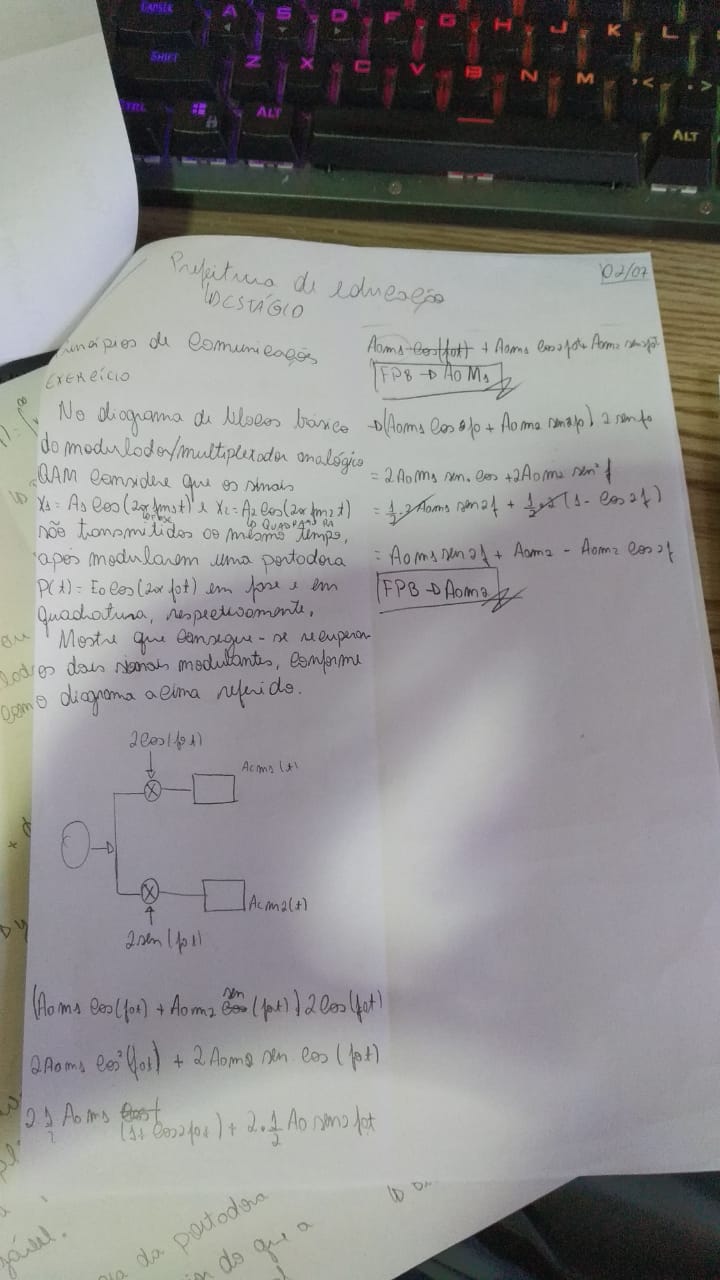 CAPSLK A S D F G H J K L
SHIFT Z X C V B N M ,< .>
CTRL ALT ALT
Prefeitura de educação
↳ ESTÁGIO
02/07
Princípios de Comunicações
EXERCÍCIO
No diagrama de blocos básico
do modulador/multiplexador analógico
QAM considere que os sinais
X1 = A1 cos(2π fm1t) e X2 = A2 cos(2π fm2t)
↳ FASE ↳ QUADRATURA
são transmitidos ao mesmo tempo,
após modularem uma portadora
P(t) = E0 cos(2π f0t) em fase e em
quadratura, respectivamente.
Mostre que consegue-se recuperar
os dois sinais modulantes, conforme
o diagrama acima referido.
2cos(f0t)
X
Acm1(t)
X
Acm2(t)
2sen(f0t)
(A0m1 cos(f0t) + A0m2 sen (f0t)) 2cos(f0t)
2A0m1 cos²(f0t) + 2A0m2 sen cos (f0t)
2 1/2 A0m1 (1+ cos2f0t) + 2.1/2 A0 sen2f0t
A0m1 cos(f0t) + A0m1 cos2f0t + A0m2 sen2f0t
FPB → A0M1
→ (A0m1 cos f0 + A0m2 sen f0) 2 sen f0
= 2A0m1 sen. cos + 2A0m2 sen² f
= 1/2.2A0m1 sen2f + 1/2.2 (1- cos 2f)
= A0m1 sen2f + A0m2 - A0m2 cos 2f
FPB → A0m2
da portadora
do que a